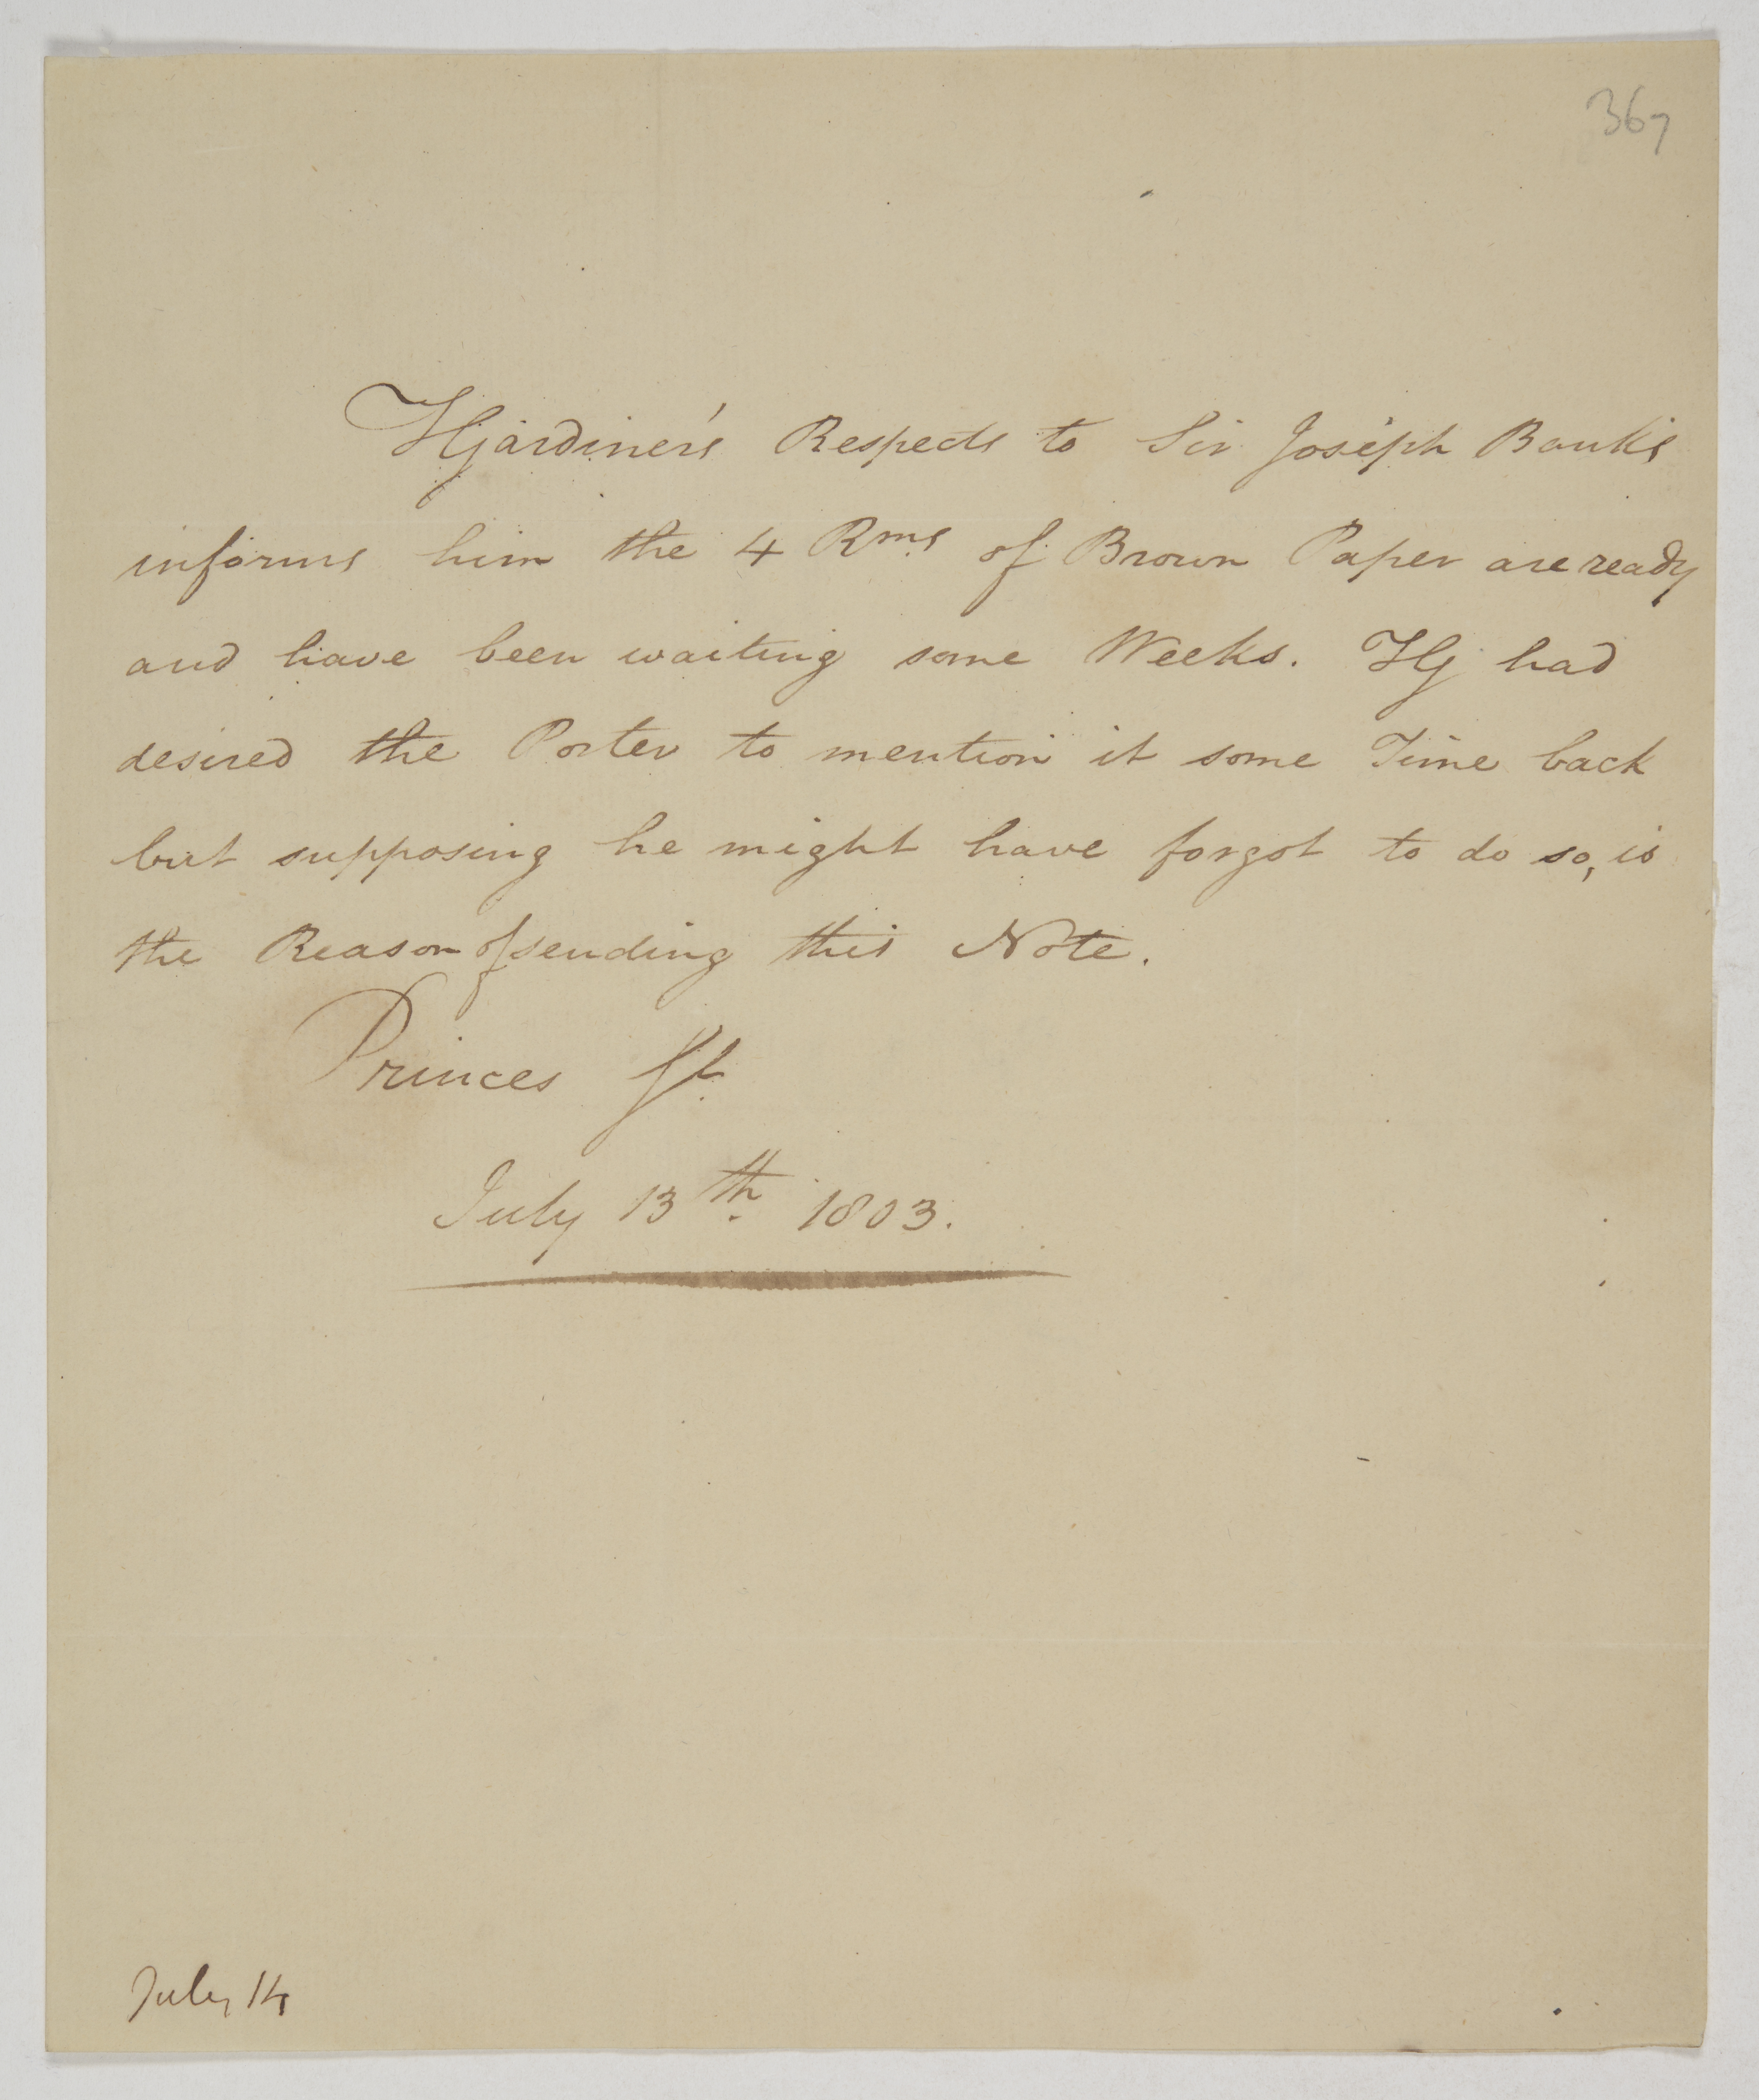 367
HGardiner's Respects to Sir Joseph Banks
informs him the 4 Rms of Brown Paper are ready
and have been waiting some Weeks. HG had
desired the Porter to mention it some Time back
but supposing he might have forgot to do so, is
the Reason of sending this Note.
Princes St.
July 13th 1803.
July 14